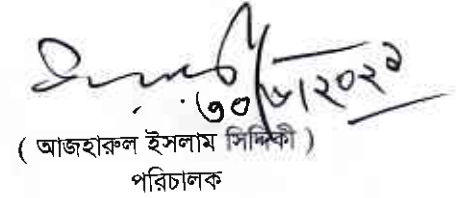 ৩০/৬/২০২১
( আজহারুল ইসলাম সিদ্দিকী )
পরিচালক